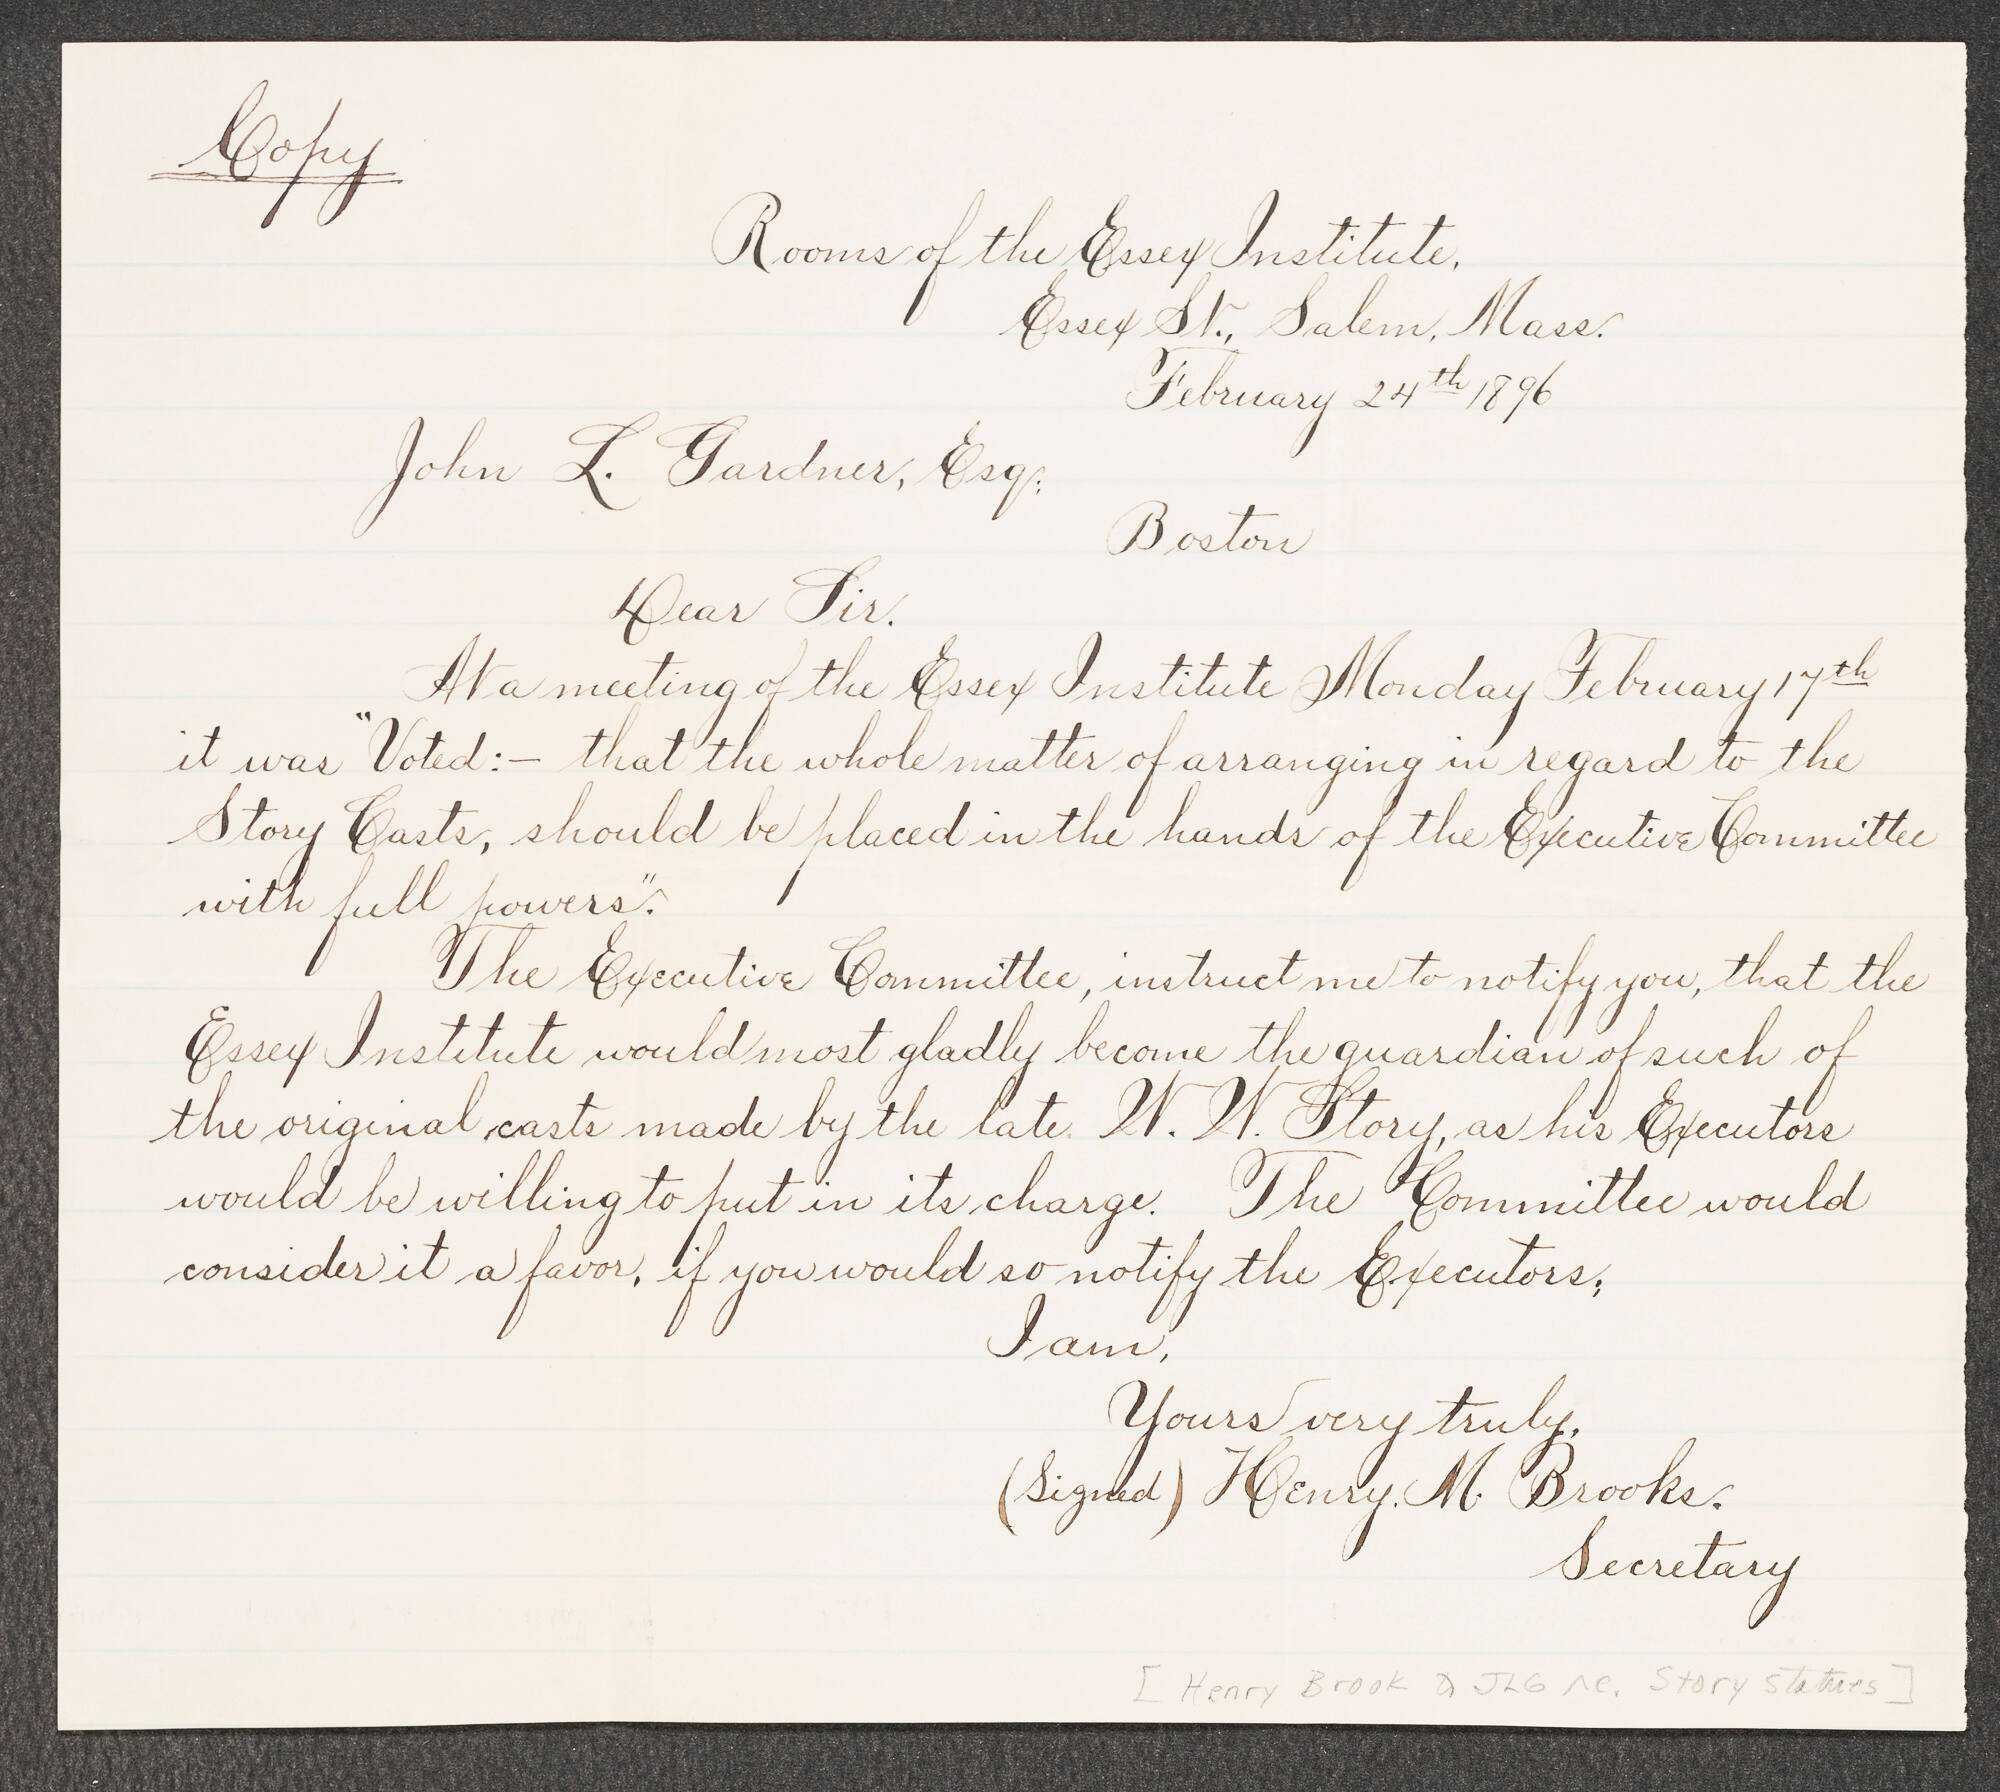 Copy
Rooms of the Essex Institute,
Essex St., Salem, Mass.
February 24th 1896
John L. Gardner, Esq.
Boston
Dear Sir.
At a meeting of the Essex Institute Monday February 17th
it was "Voted:- that the whole matter of arranging in regard to the
Story Casts, should be placed in the hands of the Executive Committee
with full powers".
The Executive Committee, instruct me to notify you, that the
Essex Institute would most gladly become the guardian of such of
the original casts made by the late W. W. Story, as his Executors
would be willing to put in its charge. The Committee would
consider it a favor, if you would so notify the Executors;
I am,
Yours very truly,
(Signed) Henry. M. Brooks.
Secretary
[Henry Brook to JLG re. Story statues]